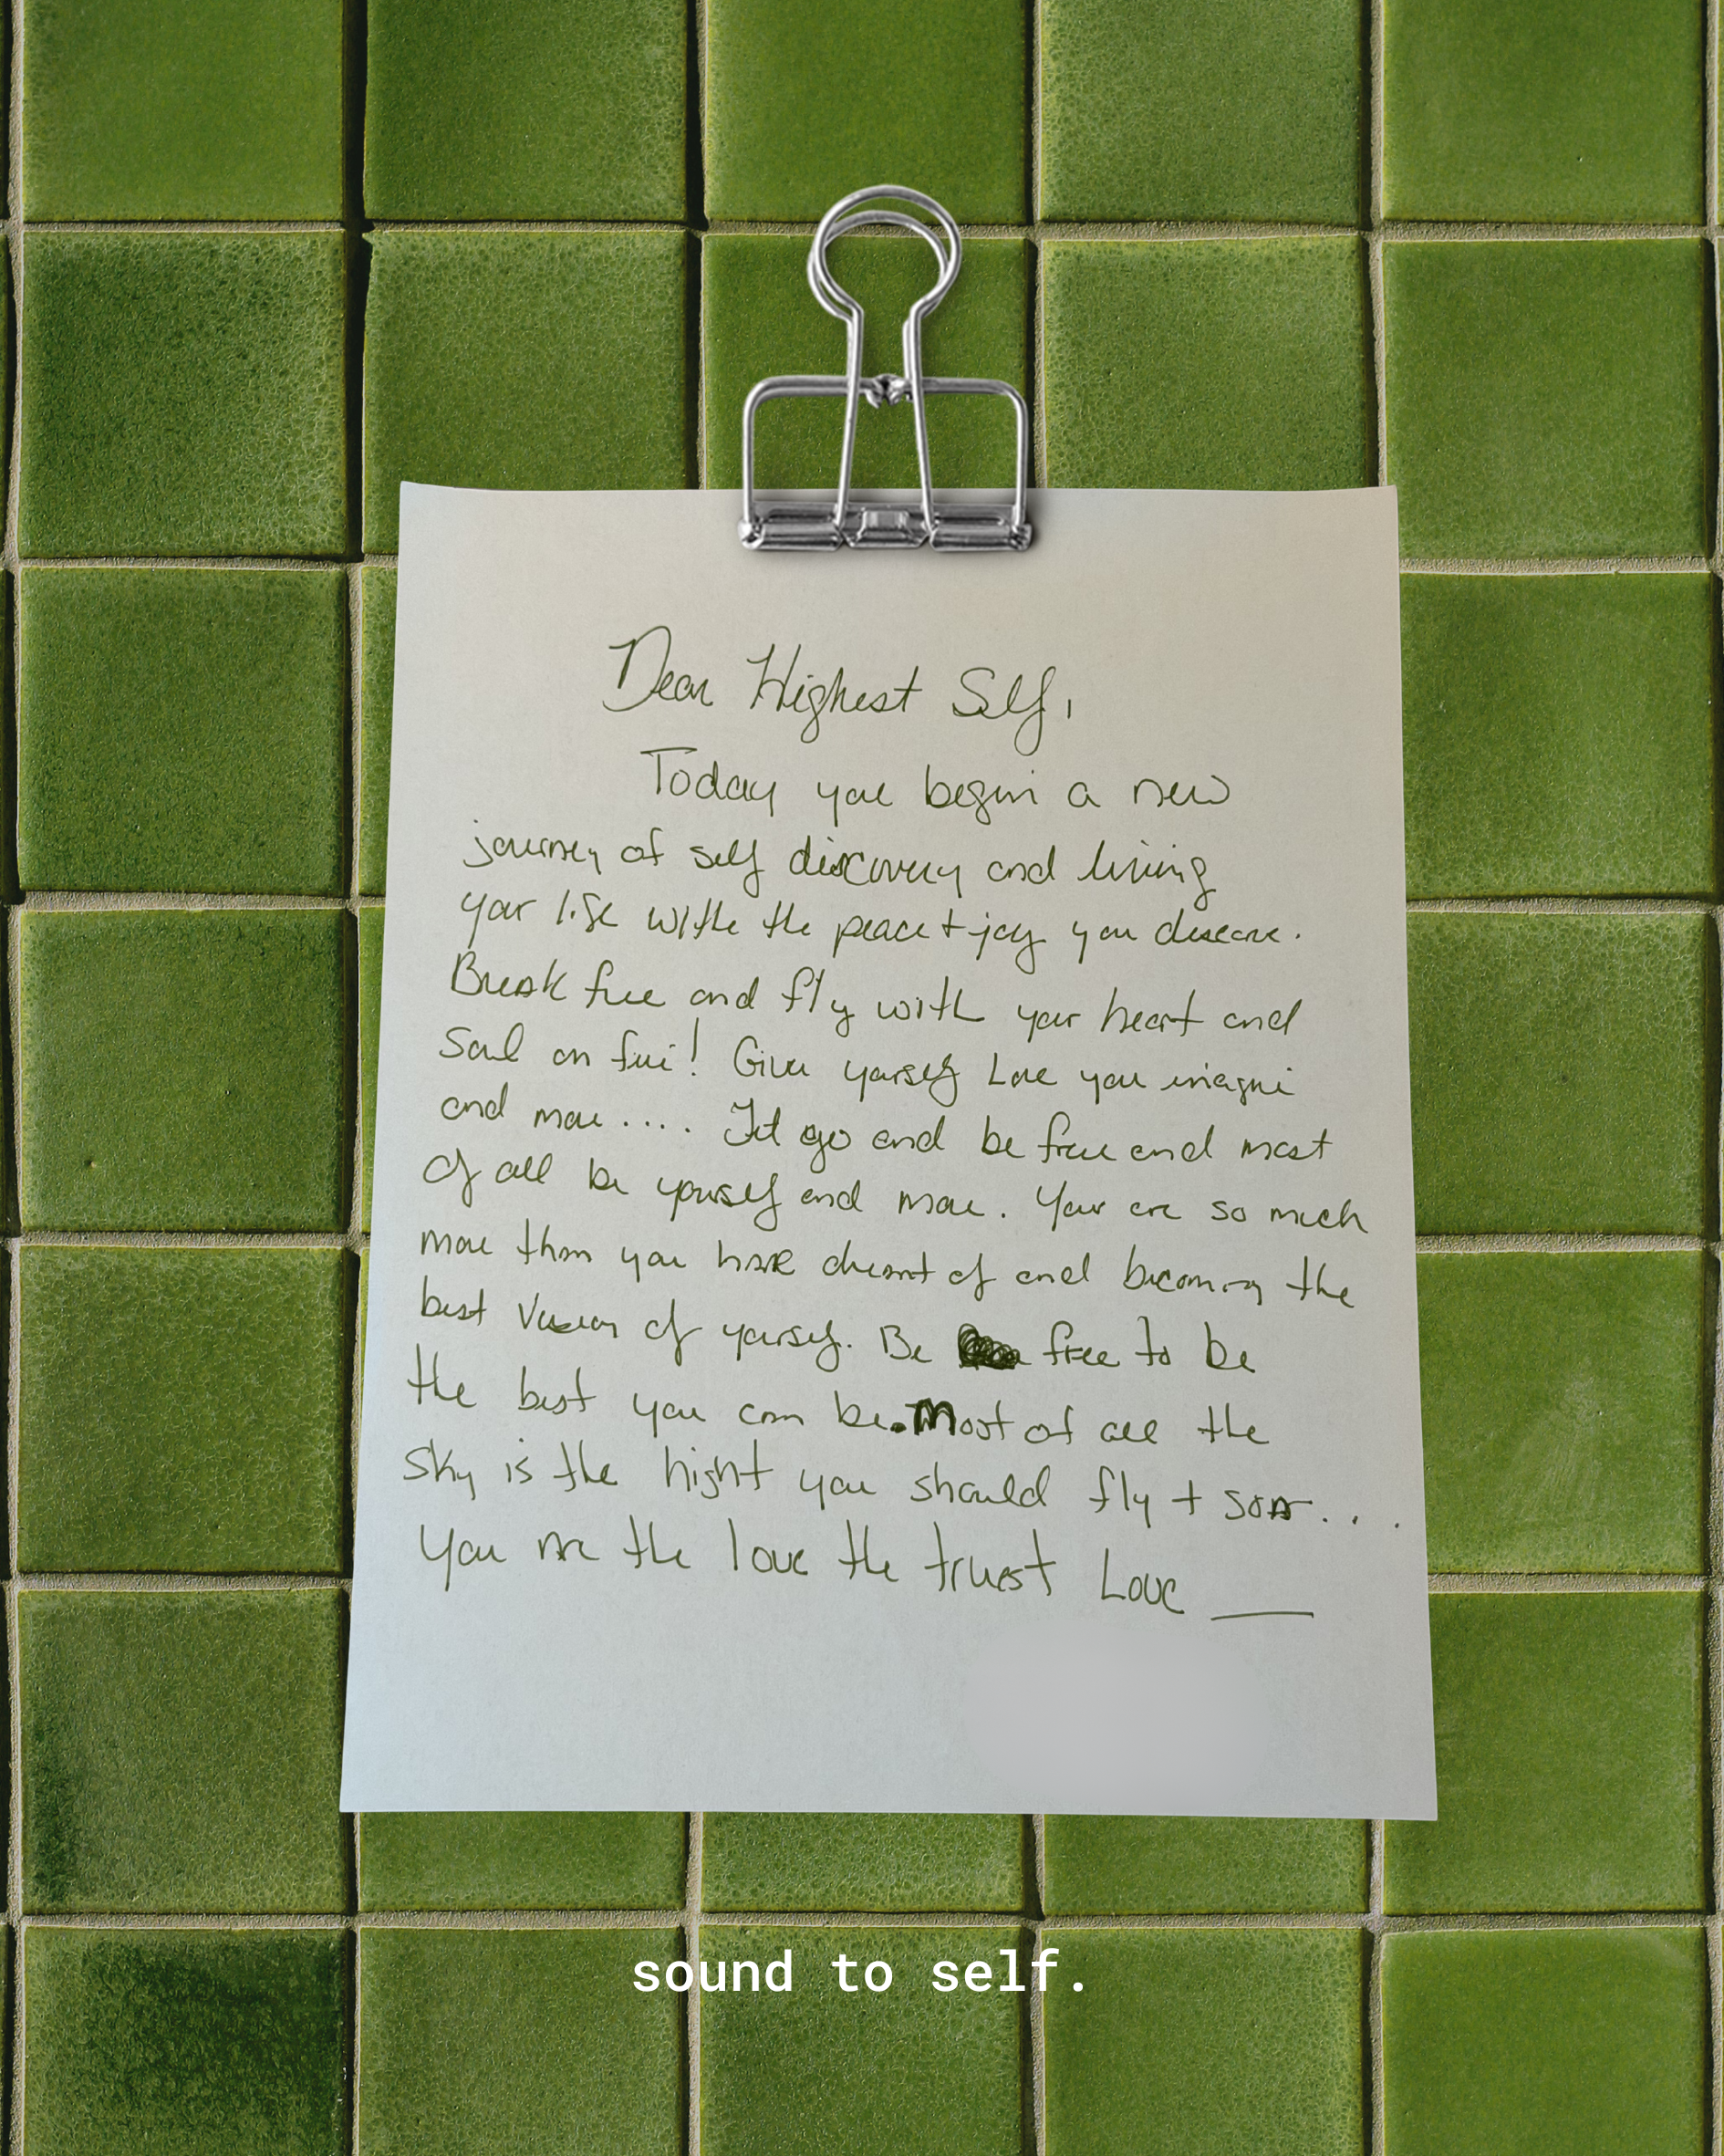 Dear Highest Self,
Today you begin a new
journey of self discovery and living
your life withe the peace + joy you deserve.
Break free and fly with your heart and
Soul on fire! Give yourself Love you imagine
and more .... Let go and be free and most
of all be yourself and more. Your are so much
more than you have dreamt of and becoming the
best Version of yourself. Be free to be
the best you can be. Most of all the
sky is the hight you should fly + soar...
You are the love the truest Love __
sound to self.